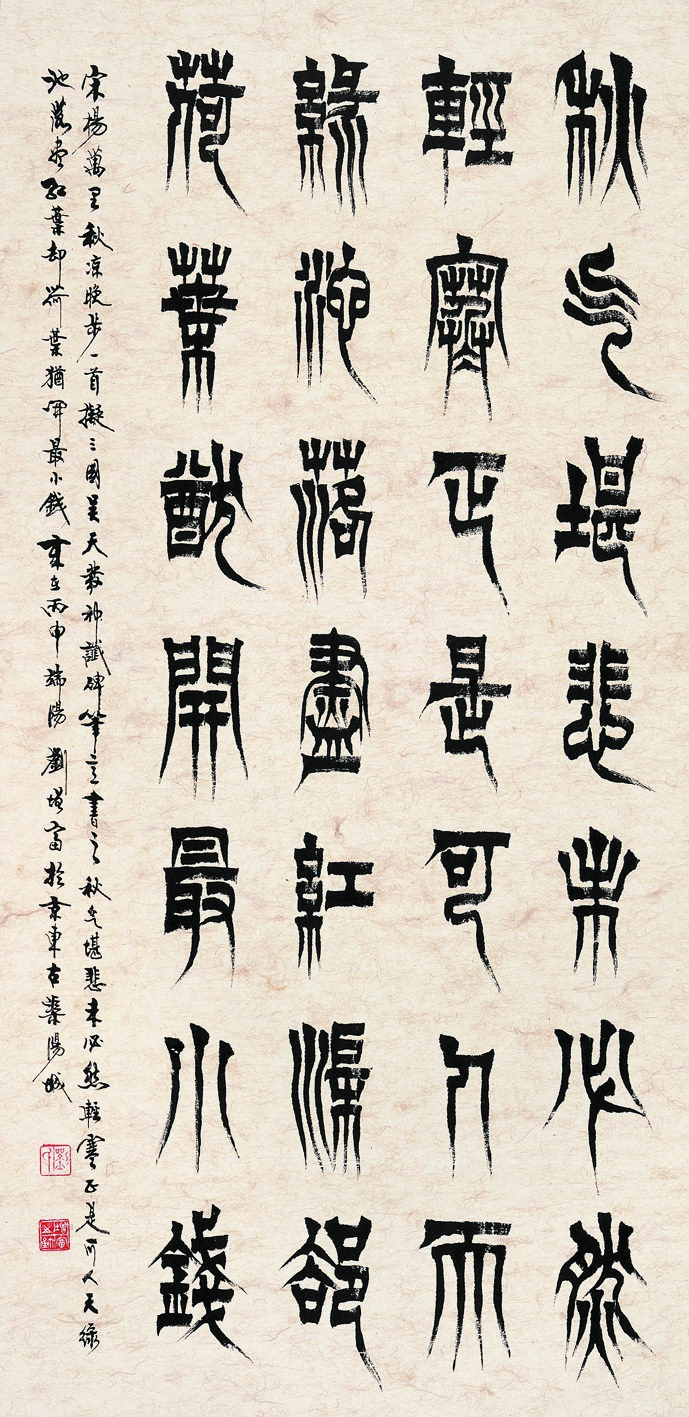 秋气堪悲未必然
輕寒正是可人天
綠池落盡紅渠卻
荷葉猶開最小錢
宋楊萬里秋凉晚步一首擬三國吳天發神讖碑筆意書之秋气堪悲未必然輕寒正是可人天綠
池落盡紅葉却荷葉猶開最小錢歲在丙申端陽劉富於京東古陽城